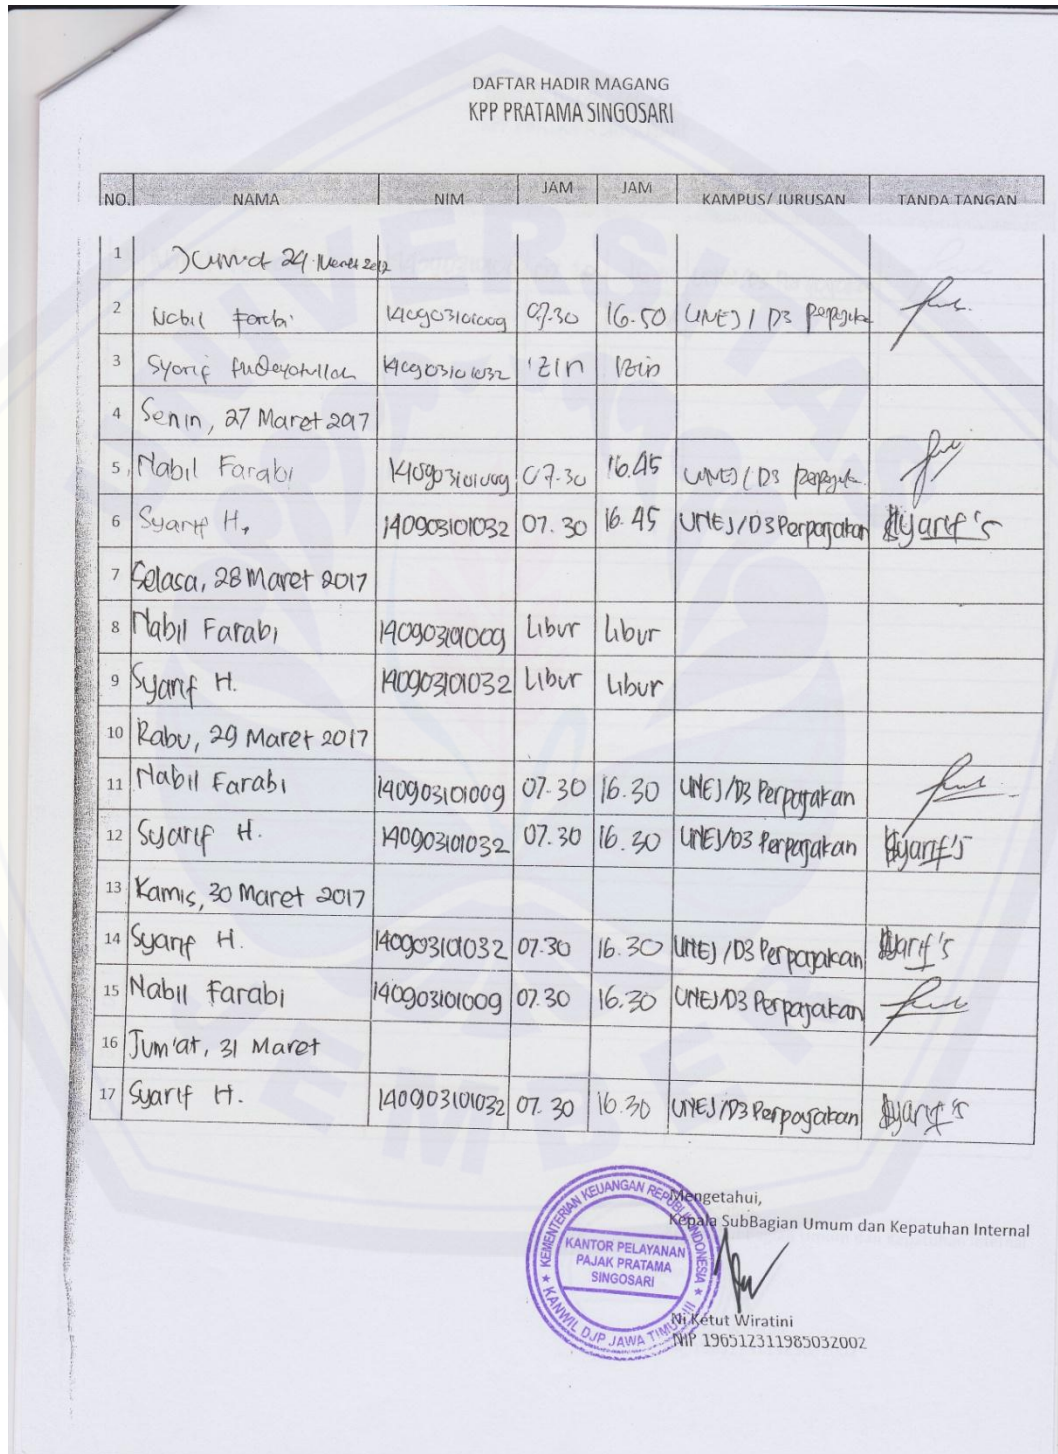 DAFTAR HADIR MAGANG
KPP PRATAMA SINGOSARI
NO. NAMA NIM JAM JAM KAMPUS/ JURUSAN TANDA TANGAN
1 Jum'at 24 Maret 2017
2 Nabil Farabi 140903101009 07.30 16.50 UNEJ / D3
3 Syarif Hidayatullah 140903101032 Izin Izin
4 Senin, 27 Maret 2017
5 Nabil Farabi 140903101009 07.30 16.45 UNEJ / D3
6 Syarif H. 140903101032 07.30 16.45 UNEJ/D3 Perpajakan Syarif's
7 Selasa, 28 Maret 2017
8 Nabil Farabi 140903101009 Libur Libur
9 Syarif H. 140903101032 Libur Libur
10 Rabu, 29 Maret 2017
11 Nabil Farabi 140903101009 07.30 16.30 UNEJ/D3 Perpajakan
12 Syarif H. 140903101032 07.30 16.30 UNEJ/D3 Perpajakan Syarif's
13 Kamis, 30 Maret 2017
14 Syarif H. 140903101032 07.30 16.30 UNEJ/D3 Perpajakan Syarif's
15 Nabil Farabi 140903101009 07.30 16.30 UNEJ/D3 Perpajakan
16 Jum'at, 31 Maret
17 Syarif H. 140903101032 07.30 16.30 UNEJ/D3 Perpajakan Syarif's
Mengetahui,
Kepala SubBagian Umum dan Kepatuhan Internal
KEMENTERIAN KEUANGAN REPUBLIK INDONESIA
KANTOR PELAYANAN
PAJAK PRATAMA
SINGOSARI
KANWIL DJP JAWA TIMUR III
Ni Ketut Wiratini
NIP 196512311985032002
UNIVERSITAS
JEMBER